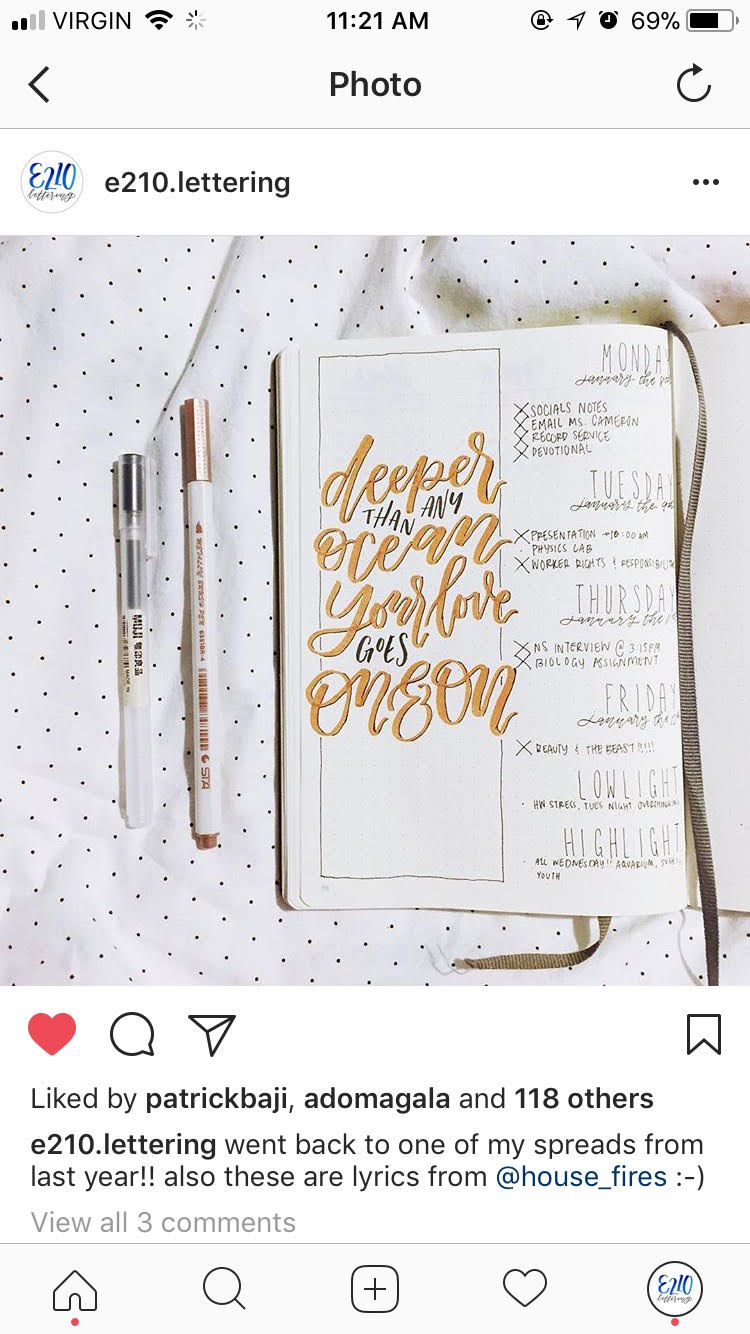 VIRGIN 11:21 AM 69%
Photo
E210
lettering
e210.lettering
MONDAY
january the
SOCIALS NOTES
EMAIL MS. CAMERON
RECORD SERVICE
DEVOTIONAL
deeper
THAN ANY
ocean
your love
GOES
on & on
TUESDAY
january the
PRESENTATION → 10:00 AM
PHYSICS LAB
WORKER RIGHTS & RESPONSIBILIT
THURSDAY
january the
NS INTERVIEW @ 3:15PM
BIOLOGY ASSIGNMENT
FRIDAY
january the
BEAUTY & THE BEAST!!!!!
LOWLIGHT
HW STRESS, TUES NIGHT OVERTHINKING
HIGHLIGHT
ALL WEDNESDAY!! AQUARIUM,
YOUTH
MUJI 無印良品
MADE IN
METALLIC BRUSH PEN
STA
Liked by patrickbaji, adomagala and 118 others
e210.lettering went back to one of my spreads from
last year!! also these are lyrics from @house_fires :-)
View all 3 comments
E210
lettering